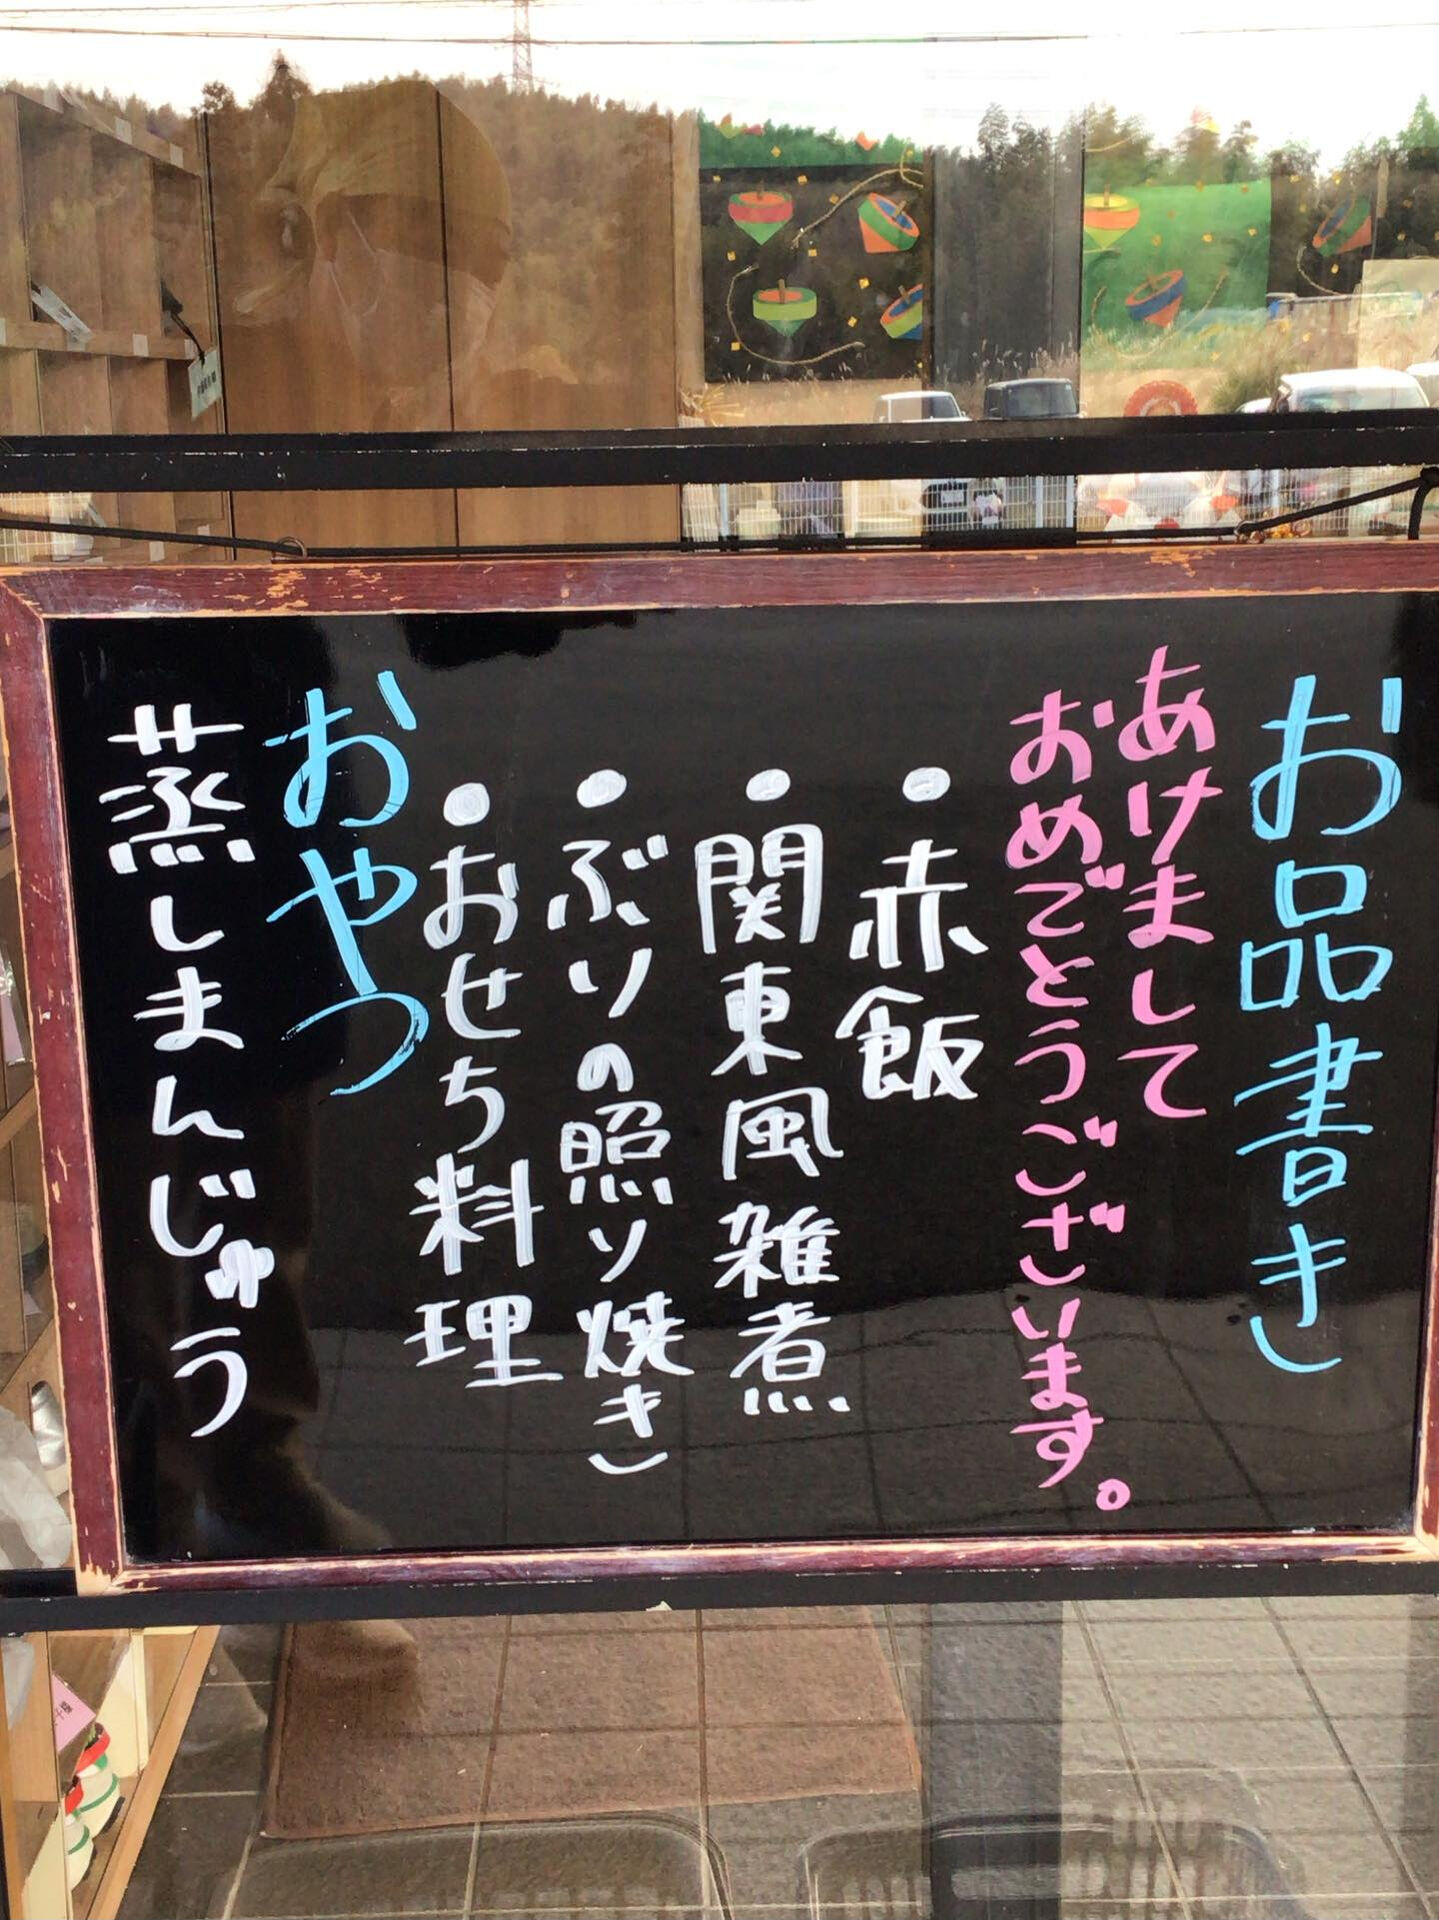 お品書き
あけまして
おめでとうございます。
・赤飯
・関東風雑煮
・ぶりの照り焼き
・おせち料理
おやつ
蒸しまんじゅう